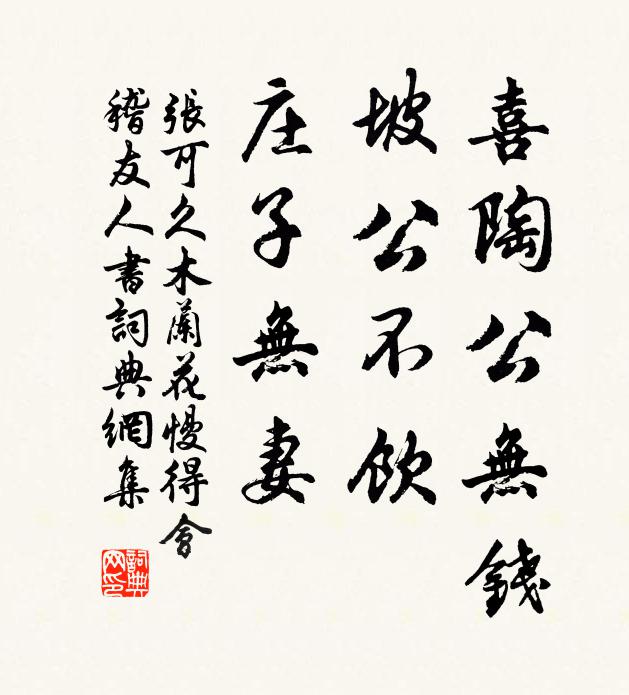 喜陶公無錢
坡公不飲
庄子無妻
張可久木蘭花慢得會
稽友人書詞典網集
詞典
网印